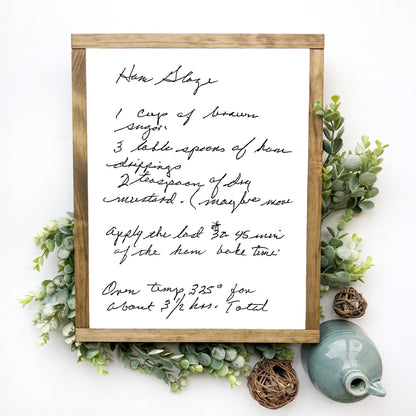 Ham Glaze
1 cup of brown
sugar
3 table spoons of ham
drippings
2 teaspoon of dry
mustard. (maybe more
Apply the last 30 to 45 min
of the ham bake time
Oven temp 325° for
about 3 1/2 hrs. Total